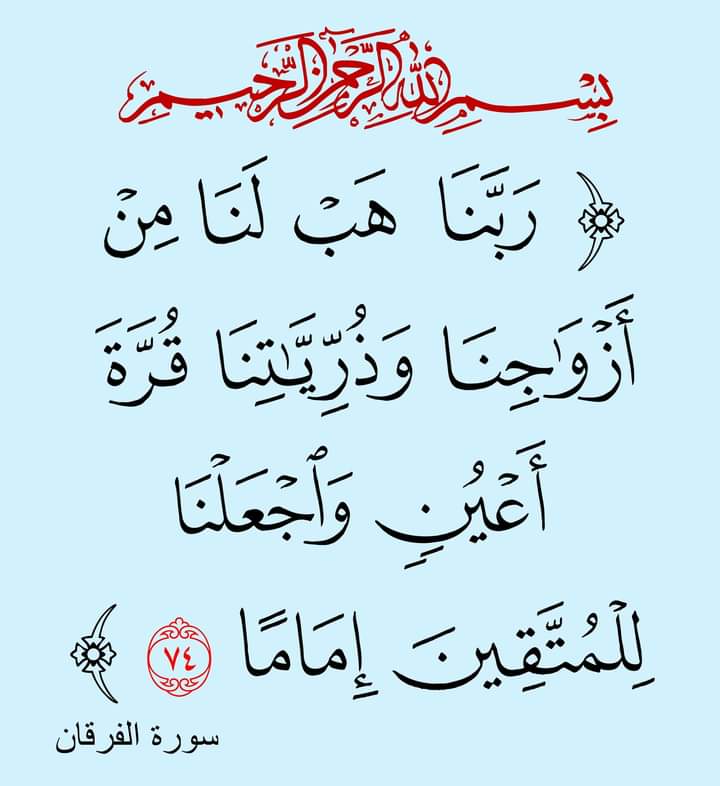 بِسْمِ اللهِ الرَّحْمٰنِ الرَّحِيمِ
﴿ رَبَّنَا هَبْ لَنَا مِنْ
أَزْوَٰجِنَا وَذُرِّيَّـٰتِنَا قُرَّةَ
أَعْيُنٍ وَٱجْعَلْنَا
لِلْمُتَّقِينَ إِمَامًا ٧٤ ﴾
سورة الفرقان